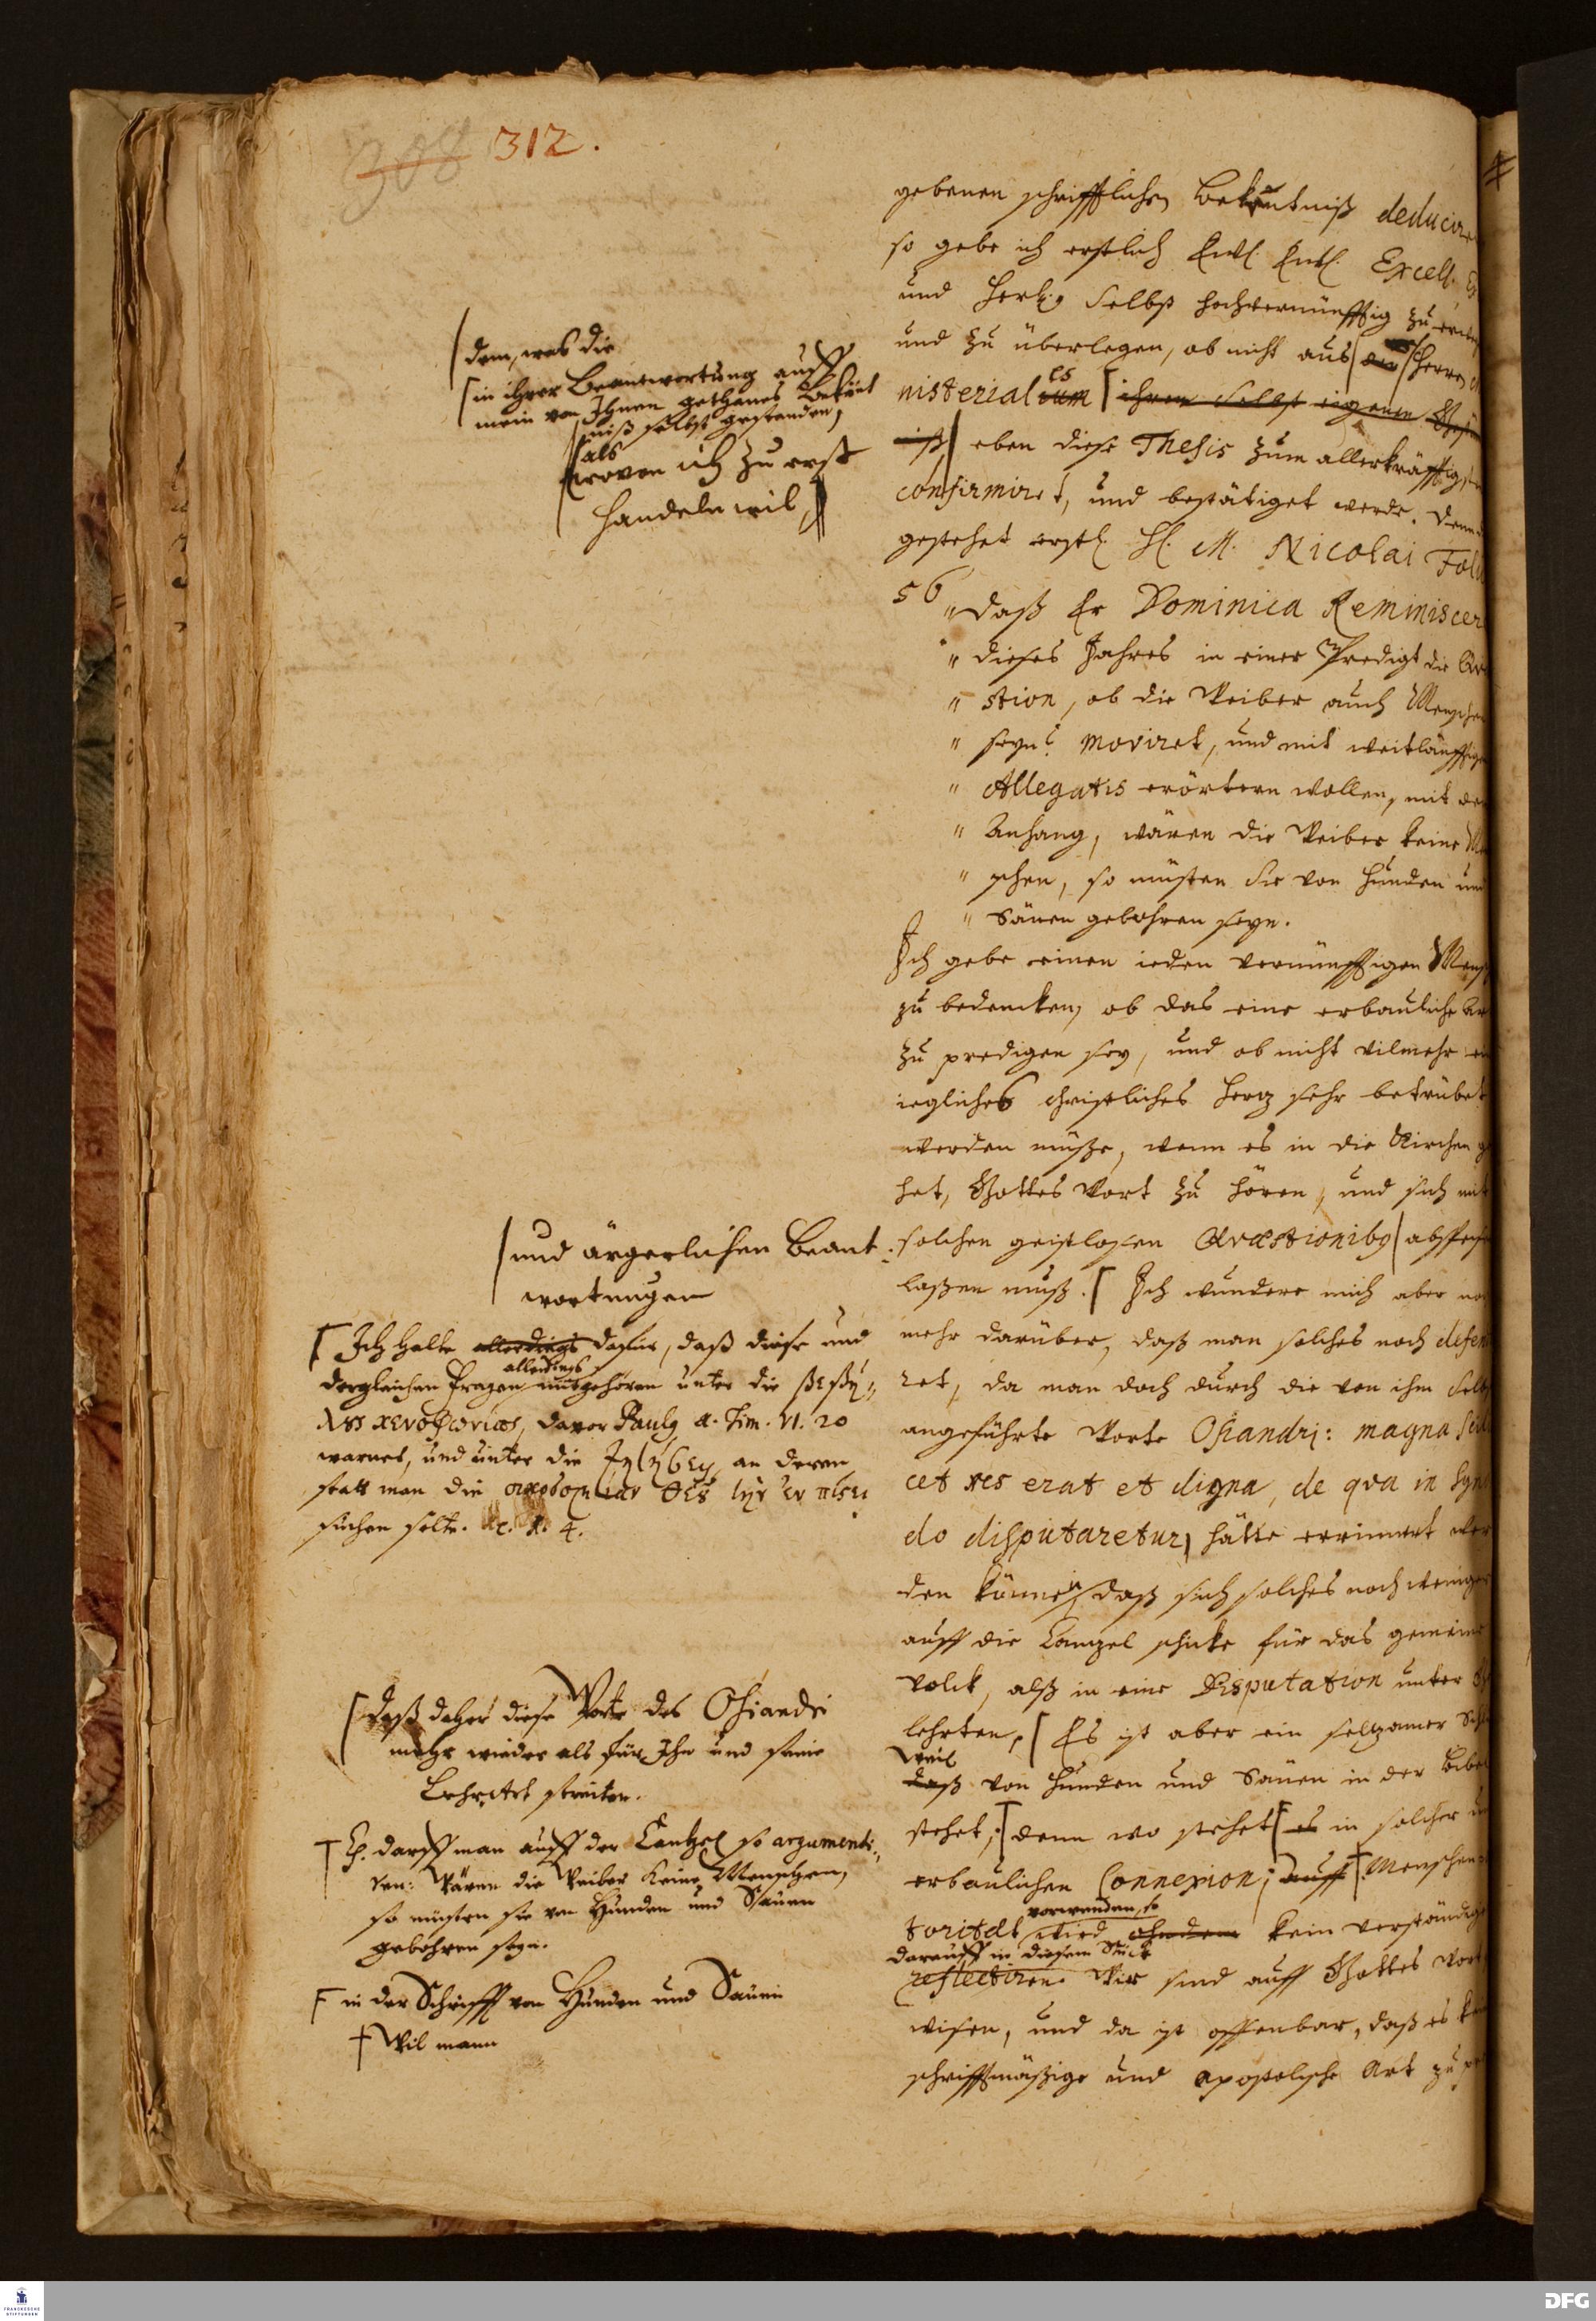 308 312.
gebenen schrifftlichen Bekäntniß deducire
so gebe ich erstlich Excell.
und selbst hochvernünfftig zu
und zu überlegen, ob nicht aus den Herren
nisterialium es ihrem selbst eigenen
ist eben diese Thesis zum allerkräfftigst
confirmiret, und bestätiget werde. Denn
gestehet erstl. H. M. Nicolai
56 " daß Er Dominica Reminiscer
" dieses Jahres in einer Predigt die
" stion, ob die Weiber auch Mensche
" seyn? moviret, und mit weitläufftige
" Allegatis erörtern wollen, mit de
" Anhang, wären die Weiber keine
" schen, so müsten Sie von Hunden und
" Säuen gebohren seyn.
Ich gebe einen ieden vernünfftigen Mens
zu bedencken, ob das eine erbauliche Ar
zu predigen sey, und ob nicht vilmehr ein
iegliches christliches Herz sehr betrübet
werden müße, wenn es in die Kirchen ge
het, Gottes Wort zu hören, und sich mit
solchen geistlosen Qvæstionibq abspeise
laßen muß. Ich wundere mich aber noch
mehr darüber, daß man solches noch defen
ret, da man doch durch die von ihm selbst
angeführte Worte Osiandri: magna
cet res erat et digna, de qva in Syno
do disputaretur, hätte errinnert wer
den können, daß sich solches noch weniger
auff die Cantzel schicke für das gemeine
Volck, alß in eine Disputation unter Ge
lehrten, Es ist aber ein seltzamer Schl
Weil
daß von Hunden und Säuen in der Bibel
stehet; denn wo stehet es in solcher un
erbaulichen Connexion; auff Menschen
vorwenden, so
toritæt wird kein verständige
darauff in diesem Stück
reflectiren. Wir sind auff Gottes Wort
wisen, und da ist offenbar, daß es kein
schrifftmäßige und apostolische Art zu pr
dem, was die
in ihrer Beantwortung auff
mein von Ihnen gethanes Bekänt
niß selbst gestanden,
als
wovon ich zu erst
handeln wil,
und ärgerlichen Beant
wortungen
Ich halte allerdings dafür, daß diese und
allerdings
dergleichen Fragen mitgehören unter die
davor Paulq 1. Tim. VI. 20
warnet, und unter die an deren
statt man die
suchen solte. c. 1. 4.
daß daher diese Worte des Osiandri
mehr wieder als für Ihn und seine
Lehr-Art streiten.
darff man auff der Cantzel so argumenti
ren: Wären die Weiber keine Menschen,
so müsten sie von Hunden und Säuen
gebohren seyn.
in der Schrifft von Hunden und Säuen
Wil mann
FRANCKESCHE
STIFTUNGEN
DFG